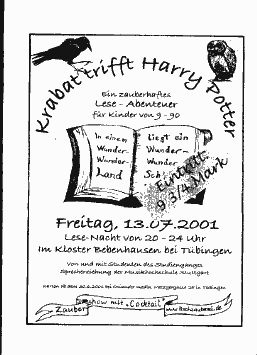 Krabat trifft Harry Potter
Ein zauberhaftes
Lese - Abenteuer
für Kinder von 9 - 90
In einem
Wunder-
Wunder-
Land
Liegt ein
Wunder-
Wunder
Eintritt:
9 3/4 Mark
Freitag, 13.07.2001
Lese-Nacht von 20 - 24 Uhr
Im Kloster Bebenhausen bei Tübingen
Von und mit Studenten des Studiengangs
Sprecherziehung der Musikhochschule Stuttgart
in Tübingen
Zauber
show mit "Cocktail"